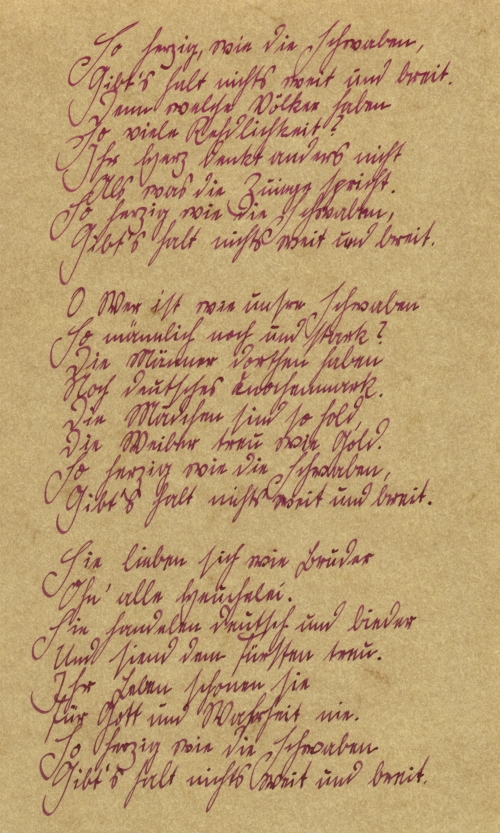 So herzig, wie die Schwaben,
Gibt's halt nichts weit und breit.
Denn welche Völker haben
So viele Rehdlichkeit?
Ihr Herz denkt anders nicht
Als was die Zuingg spricht.
So herzig wie die Schwalten,
Gibt's halt nichts weit und breit.

O Wer ist wie unsre Schwaben
So männlich noch und stark?
Die Männer dorthen haben
Noch deutsches Knochenmark.
Die Mädchen sind so hold,
Die Weiber treu wie Gold.
So herzig wie die Schwaben,
Gibt's halt nichts weit und breit.

Sie lieben sich wie Bruder
Ohn' alle Heuchelei.
Sie handelen deutsch und bieder
Und siend dem Fürsten treu.
Ihr Leben schonen sie
Für Gott und Wahrheit nie.
So herzig wie die Schwaben
Gibt's halt nichts weit und breit.